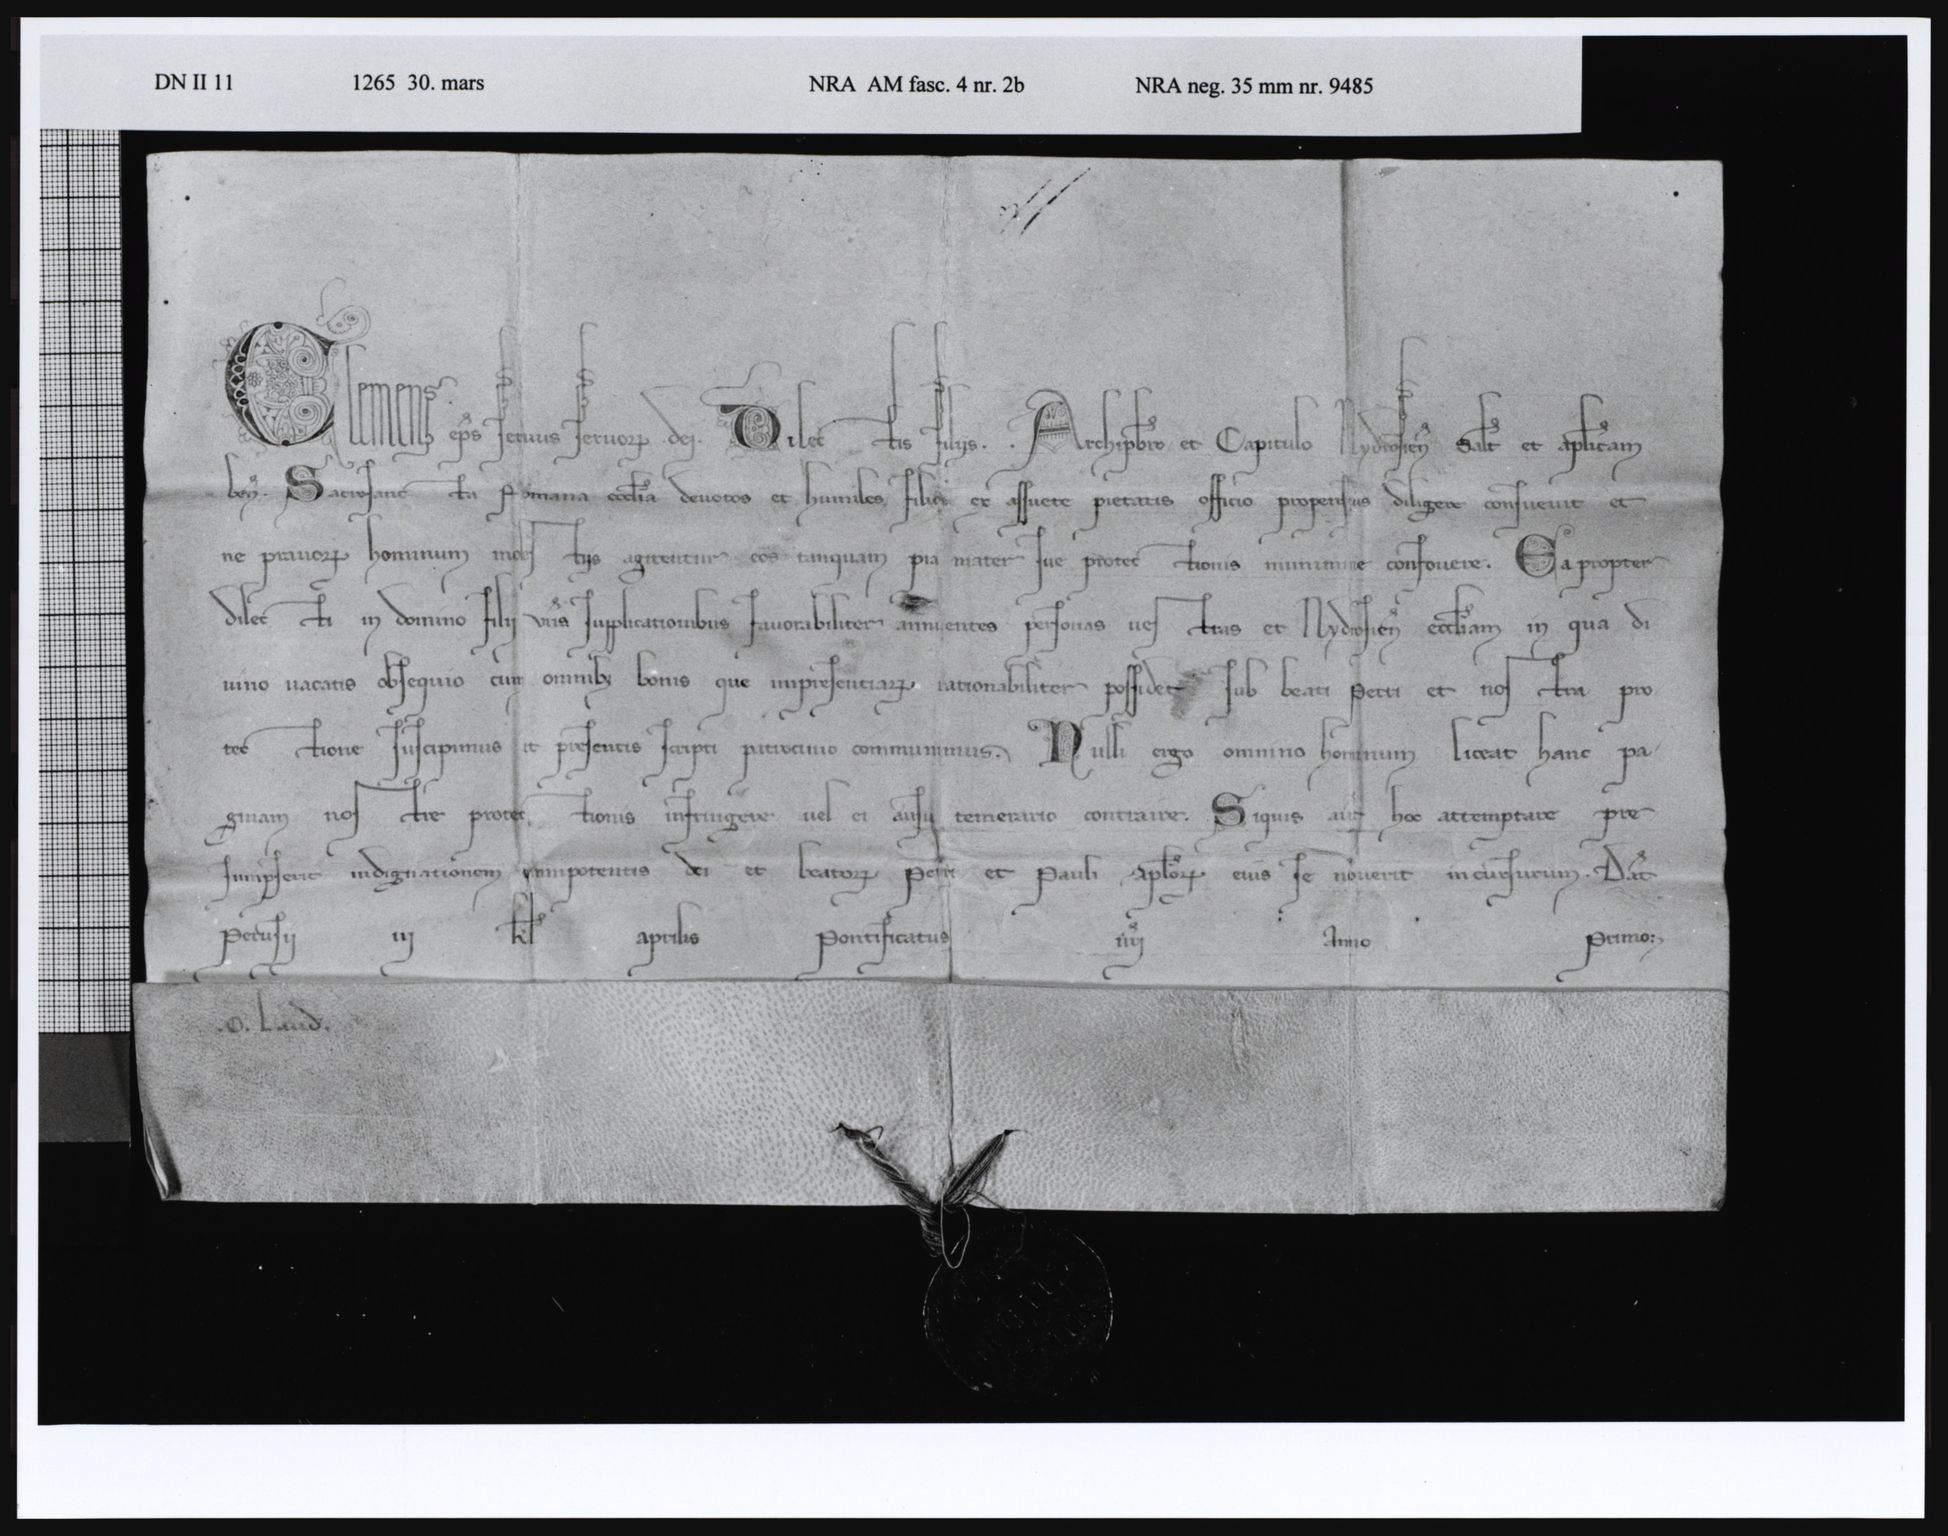 DN II 11 1265 30. mars NRA AM fasc. 4 nr. 2b NRA neg. 35 mm nr. 9485
Clemens ep̄s seruus seruoꝝ dei. Dilectis filijs . . Archipb̄ro et Capitulo Nydrosieñ Salt̄ et apl̄icam
beñ. Sacrosancta Romana eccl̄ia deuotos et humiles filios ex assuete pietatis officio propensius diligere consueuit et
ne prauoꝝ hominum molestijs agitentur eos tanquam pia mater sue protectionis munimine confouere. Ea propter
dilecti in domino filij vr̄is supplicationibus fauorabiliter annuentes personas uestras et Nydrosieñ eccl̄iam in qua di
uino uacatis obsequio cum omnibꝫ bonis que impresentiaꝝ rationabiliter possidet sub beati Petri et nostra pro
tectione suscipimus et presentis scripti patrocinio communimus. Nulli ergo omnino hominum liceat hanc pa
ginam nostre protectionis infringere uel ei ausu temerario contraire. Siquis aut̄ hoc attemptare pre
sumpserit indignationem omnipotentis dei et beatoꝝ Petri et Pauli apl̄oꝝ eius se nouerit incursurum. Dat̄
Perusij iij kl̄ aprilis Pontificatus nr̄i Anno Primo
.O. Laud.